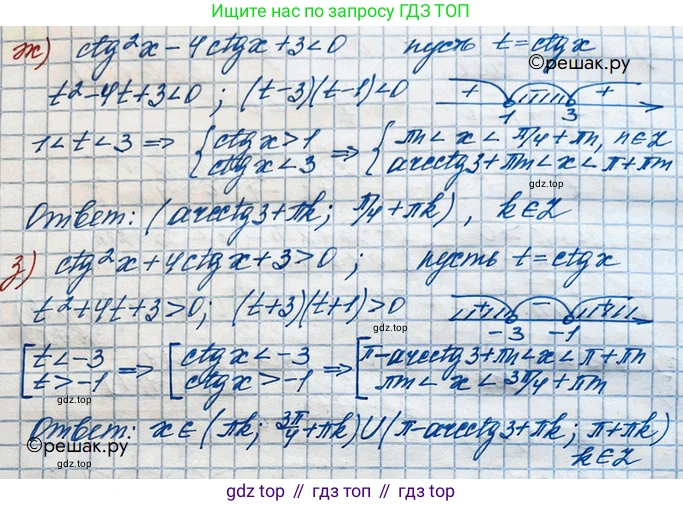 Ищите нас по запросу ГДЗ ТОП
ж) ctg²x - 4ctgx + 3 < 0 пусть t = ctgx
©решак.ру
t² - 4t + 3 < 0 ; (t-3)(t-1) < 0
+ - +
1 3
1 < t < 3 ⇒ { ctgx > 1 ⇒ { πn < x < π/4 + πn, n ∈ Z
ctgx < 3 arcctg3 + πm < x < π + πm
gdz.top
Ответ: (arcctg3 + πk; π/4 + πk), k ∈ Z
з) ctg²x + 4ctgx + 3 > 0 ; пусть t = ctgx
t² + 4t + 3 > 0; (t+3)(t+1) > 0
+ - +
-3 -1
gdz.top
[ t < -3 ⇒ [ ctgx < -3 ⇒ [ π - arcctg3 + πn < x < π + πn
t > -1 ctgx > -1 πm < x < 3π/4 + πm
gdz.top
Ответ: x ∈ (πk; 3π/4 + πk) U (π - arcctg3 + πk; π + πk)
k ∈ Z
©решак.ру
gdz.top
gdz.top
gdz top // гдз топ // gdz.top